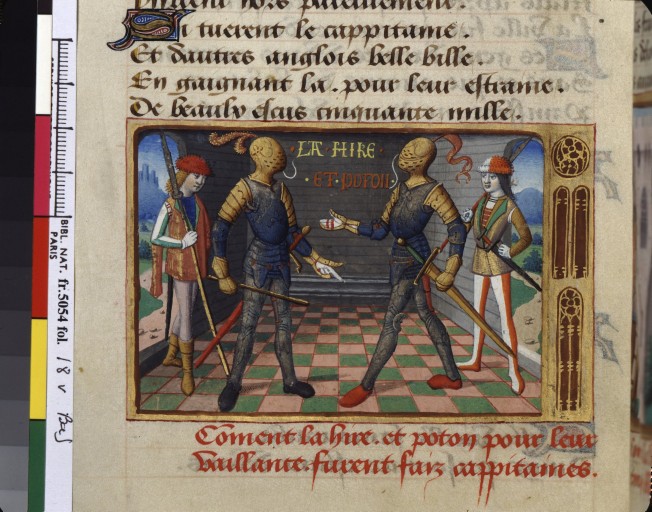 tuerent le cappitaine.
Et dautres anglois belle bille.
En gaignant la. pour leur estraine.
De beaulx escus cinquante mille.
LA HIRE
ET POTON
Coment la hire. et poton pour leur
vaillance. furent faiz cappitaines.
BIBL. NAT. fr. 5054 fol. 18 v
PARIS